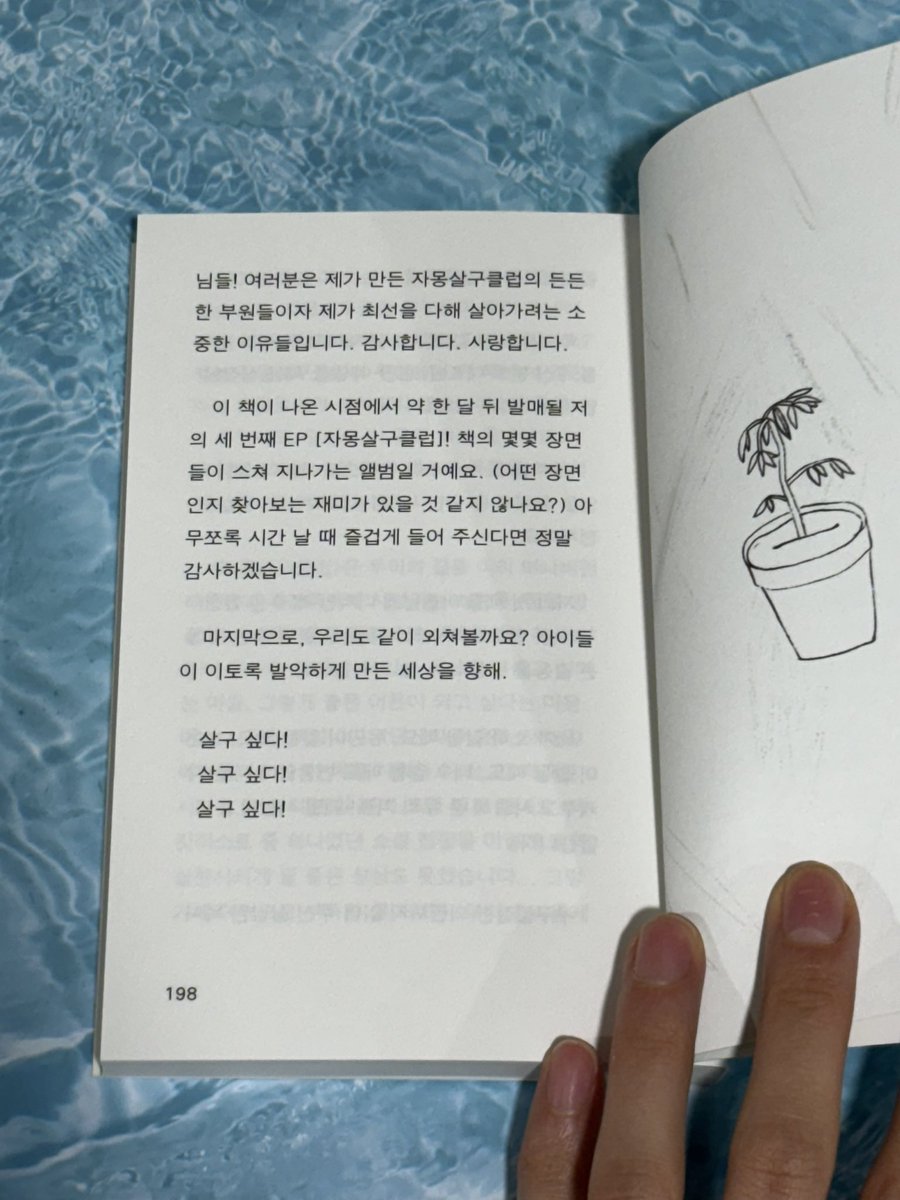 님들! 여러분은 제가 만든 자몽살구클럽의 든든
한 부원들이자 제가 최선을 다해 살아가려는 소
중한 이유들입니다. 감사합니다. 사랑합니다.
이 책이 나온 시점에서 약 한 달 뒤 발매될 저
의 세 번째 EP [자몽살구클럽]! 책의 몇몇 장면
들이 스쳐 지나가는 앨범일 거예요. (어떤 장면
인지 찾아보는 재미가 있을 것 같지 않나요?) 아
무쪼록 시간 날 때 즐겁게 들어 주신다면 정말
감사하겠습니다.
마지막으로, 우리도 같이 외쳐볼까요? 아이들
이 이토록 발악하게 만든 세상을 향해.
살구 싶다!
살구 싶다!
살구 싶다!
198